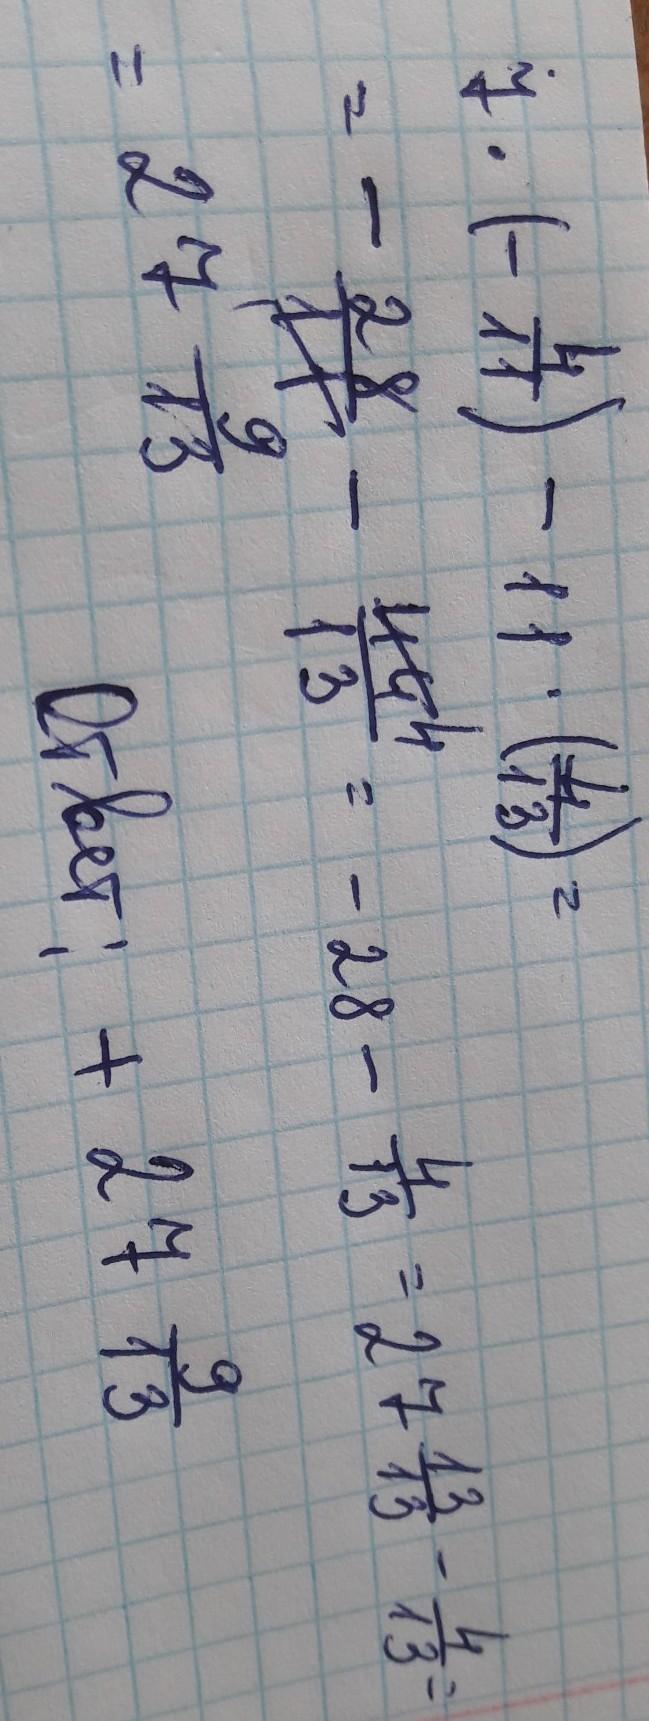 7 · (- 4/11) - 11 · (4/13) =
= - 28/11 - 44/13 = - 28 - 4/13 = 27 13/13 - 4/13 =
= 27 9/13
Ответ: + 27 9/13